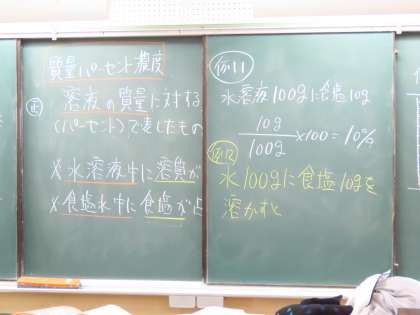 質量パーセント濃度
正 溶液の質量に対する
(パーセント)で表したもの
※水溶液中に溶質が
※食塩水中に食塩が占
例1
水溶液100gに食塩10g
10g
100g ×100=10%
例2
水100gに食塩10gを
溶かすと